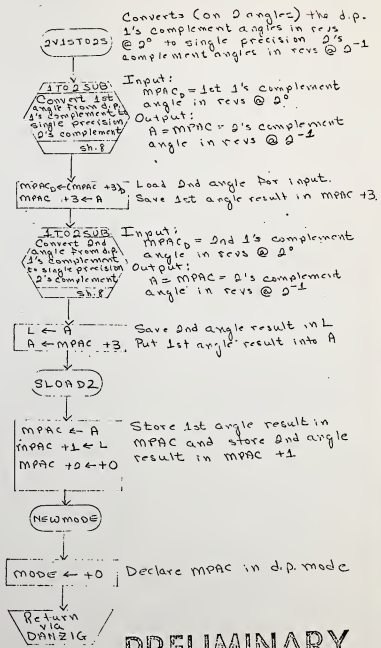 Converts (on 2 angles) the d.p.
1's complement angles in revs
@ 2⁰ to single precision 2's
complement angles in revs @ 2⁻¹
2V1STO2S
1TO2SUB
Convert 1st
angle from d.p.
1's complement to
single precision
2's complement
sh.8
Input:
MPAC_D = 1st 1's complement
angle in revs @ 2⁰
Output:
A = MPAC = 2's complement
angle in revs @ 2⁻¹
MPAC_D ← (MPAC +3)_D
MPAC +3 ← A
Load 2nd angle for input.
Save 1st angle result in MPAC +3.
1TO2SUB
Convert 2nd
angle from d.p.
1's complement
to single precision
2's complement
sh.8
Input:
MPAC_D = 2nd 1's complement
angle in revs @ 2⁰
Output:
A = MPAC = 2's complement
angle in revs @ 2⁻¹
L ← A
A ← MPAC +3
Save 2nd angle result in L
Put 1st angle result into A
SLOAD2
MPAC ← A
MPAC +1 ← L
MPAC +2 ← +0
Store 1st angle result in
MPAC and store 2nd angle
result in MPAC +1
NEWMODE
MODE ← +0
Declare MPAC in d.p. mode
Return
via
DANZIG
PRELIMINARY